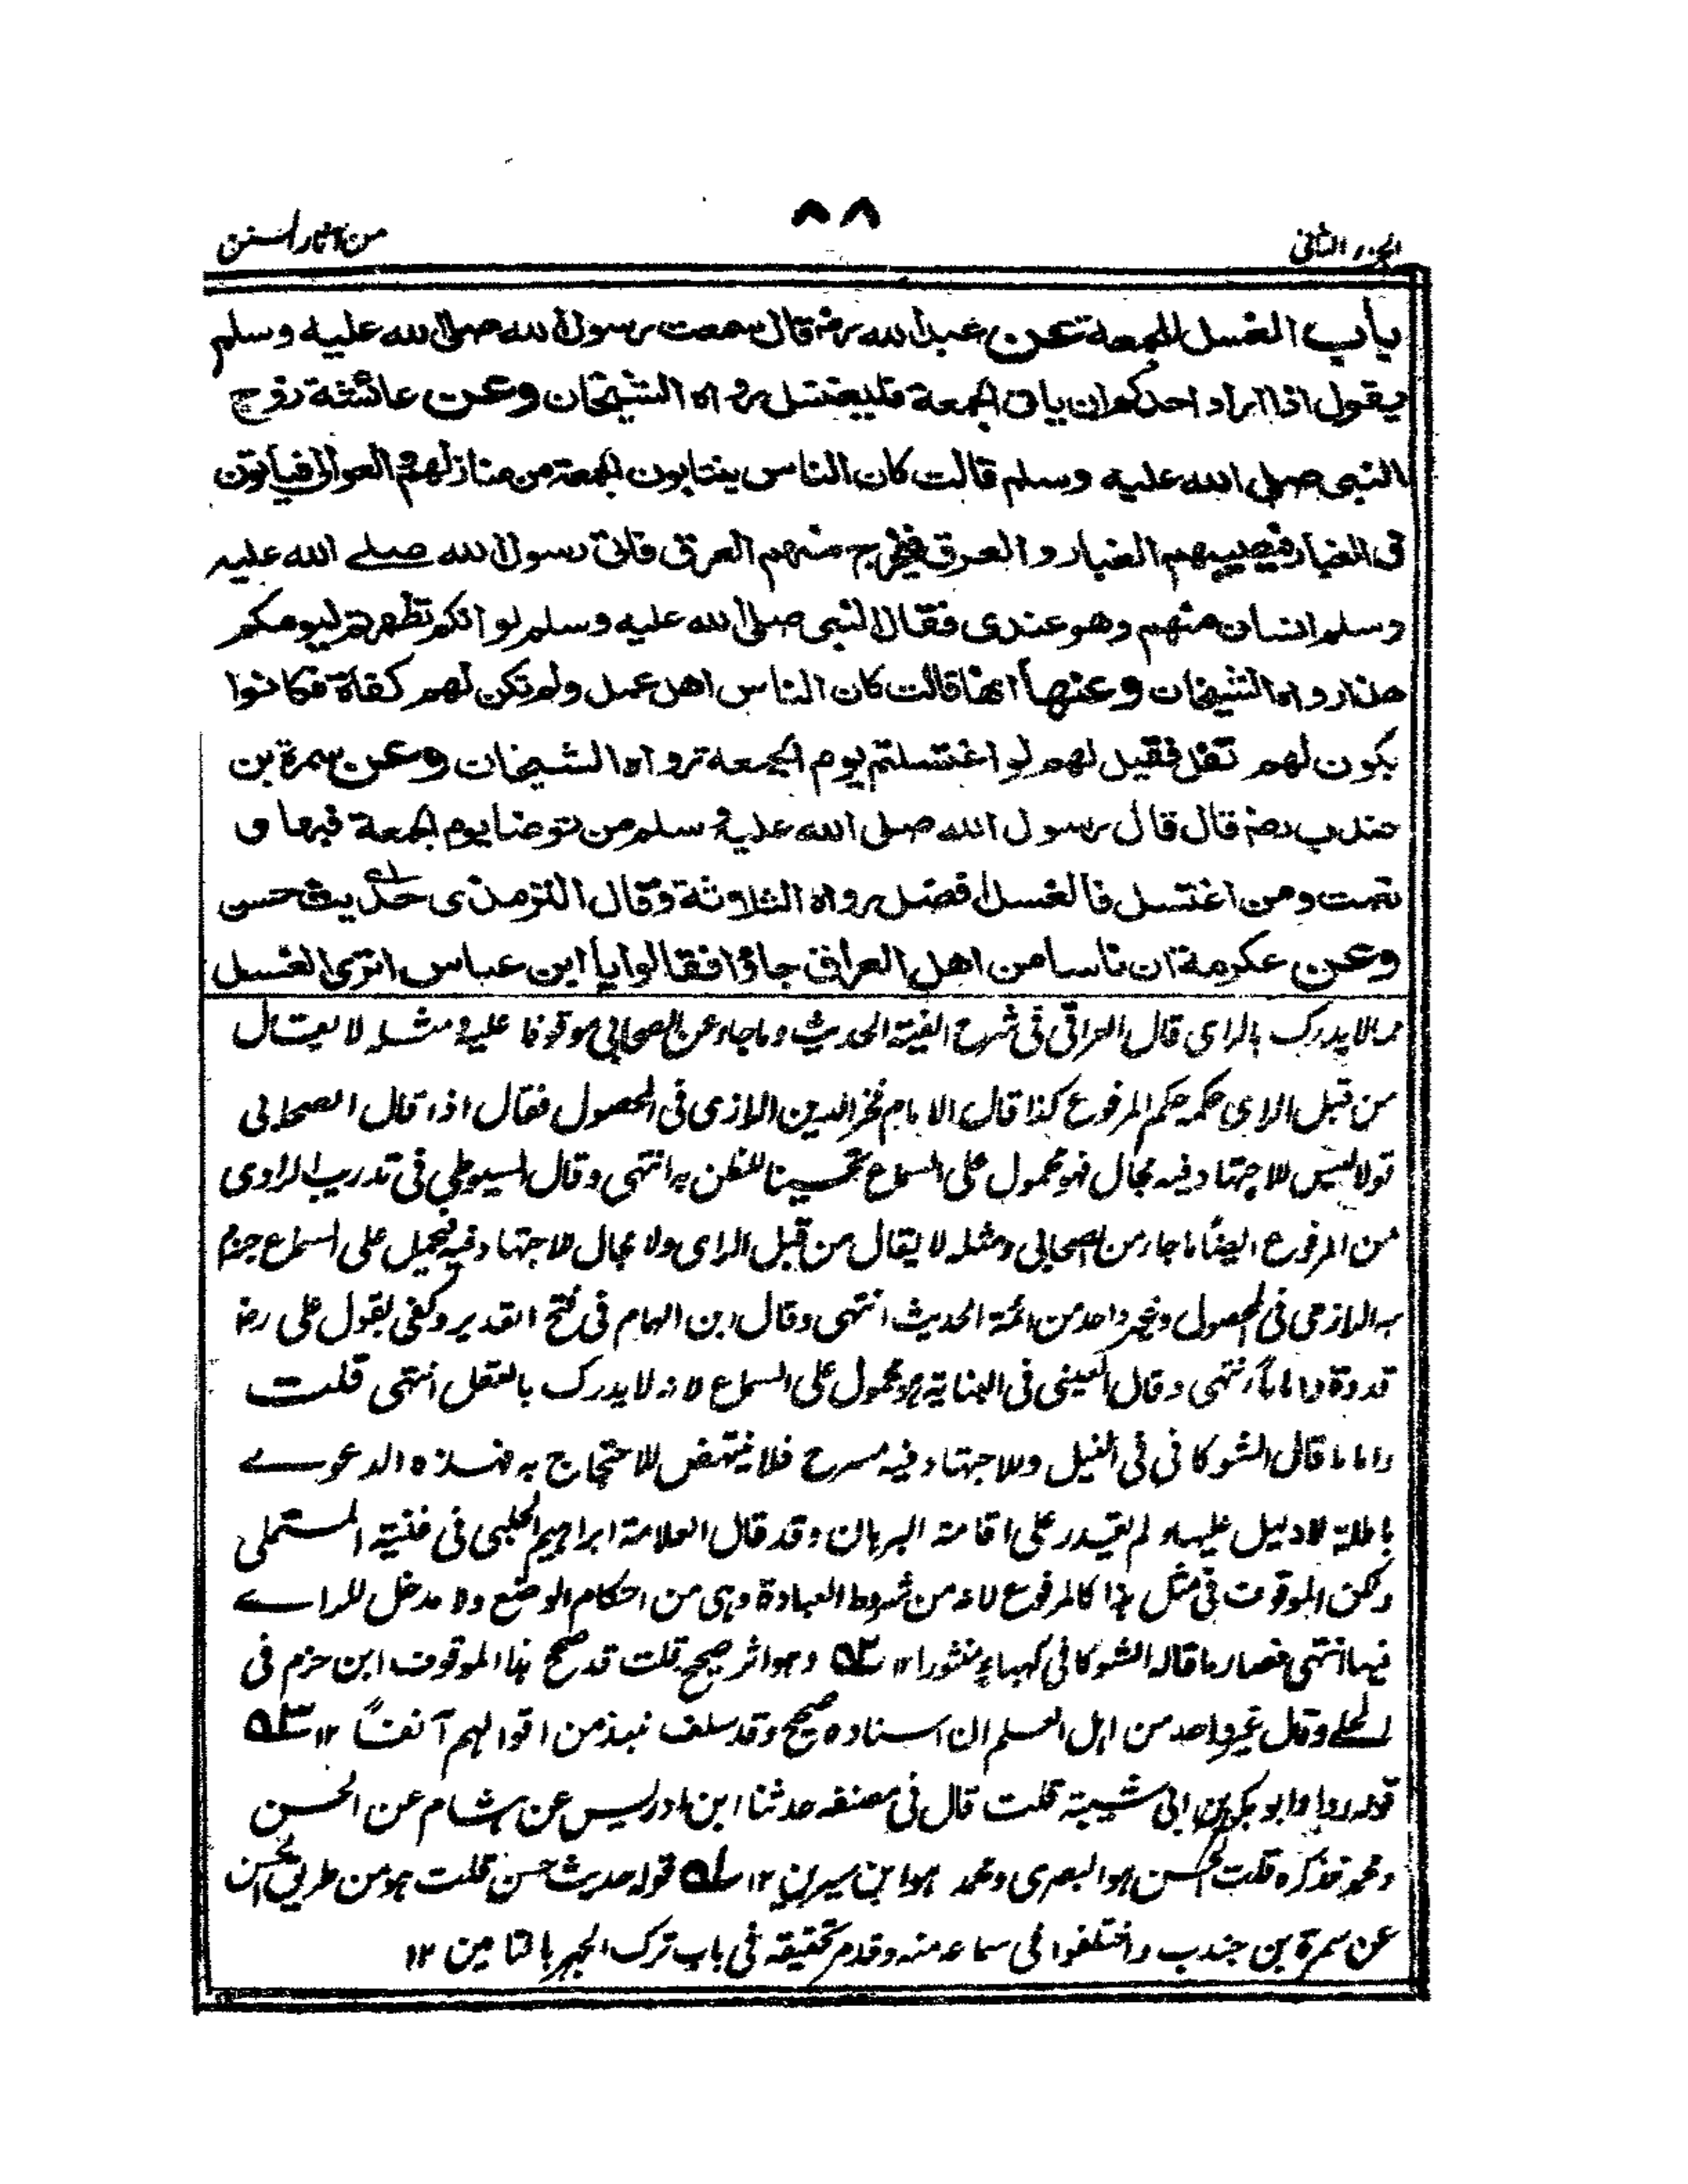 الجزء الثانی
۸۸
من آثار السنن
باب الغسل للجمعة عن عبد الله رضـ قال سمعت رسول الله صلی الله علیه وسلم
یقول اذا اراد احدکم ان یاتی الجمعة فلیغتسل رواه الشیخان وعن عائشة زوج
النبی صلی الله علیه وسلم قالت کان الناس ینتابون الجمعة من منازلهم والعوالی فیأتون
فی الغبار فیصیبهم الغبار والعرق فیخرج منهم العرق فاتی رسول الله صلے الله علیه
وسلم انسان منهم وهو عندی فقال النبی صلی الله علیه وسلم لو انکم تطهرتم لیومکم
هذا رواه الشیخان وعنها انها قالت کان الناس اهل عمل ولم تکن لهم کفاة فکانوا
یکون لهم تفل فقیل لهم لو اغتسلتم یوم الجمعة رواه الشیخان وعن سمرة بن
جندب رضـ قال قال رسول الله صلی الله علیه وسلم من توضأ یوم الجمعة فبها و
نعمت ومن اغتسل فالغسل افضل رواه الثلاثة وقال الترمذی حدیث حسن
وعن عکرمة ان ناسا من اهل العراق جاؤا فقالوا یا ابن عباس اتری الغسل
مما لا یدرک بالرای قال العراقی فی شرح الفیة الحدیث وما جاء عن الصحابی موقوفا علیه ومثله لا یقال
من قبل الرای حکمه حکم المرفوع کذا قال الامام فخر الدین الرازی فی المحصول فقال اذا قال الصحابی
قولا لیس للاجتهاد فیه مجال فهو محمول علی السماع تحسینا للظن به انتهی وقال السیوطی فی تدریب الراوی
من المرفوع ایضاً ما جاء من الصحابی ومثله لا یقال من قبل الرای ولا مجال للاجتهاد فیه فیحمل علی السماع جزم
به الرازی فی المحصول وغیر واحد من ائمة الحدیث انتهی وقال ابن الهمام فی فتح القدیر وکفی بقول علی رضـ
قدوة واماماً انتهی وقال العینی فی البنایة هو محمول علی السماع لانه لا یدرک بالعقل انتهی قلت
واما ما قال الشوکانی فی النیل وللاجتهاد فیه مسرح فلا ینتهض للاحتجاج به فهذه الدعوے
باطلة لا دلیل علیها ولم یقدر علی اقامة البرهان وقد قال العلامة ابراهیم الحلبی فی غنیة المستملی
ولکن الموقوف فی مثل هذا کالمرفوع لانه من شروط العبادة وهی من احکام الوضع ولا مدخل للراے
فیها انتهی فصار ما قاله الشوکانی کهباء منثورا ۱۲ ۵۲ وهو اثر صحیح قلت قد صحح هذا الموقوف ابن حزم فی
المحلے وقال غیر واحد من اهل العلم ان اسناده صحیح وقد سلف نبذ من اقوالهم آنفاً ۱۲ ۵۳
قوله رواه ابو بکر بن ابی شیبة قلت قال فی مصنفه حدثنا ابن ادریس عن هشام عن الحسن
ومحمد فذکره قلت الحسن هو البصری ومحمد هو ابن سیرین ۱۲ ۵۱ قوله حدیث حسن قلت هو من طریق الحسن
عن سمرة بن جندب واختلفوا فی سماعه منه وقد مر تحقیقه فی باب ترک الجهر بالتامین ۱۲